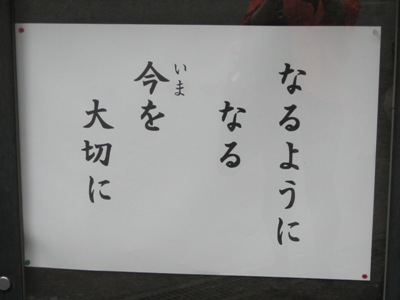 なるように
なる
今を
いま
大切に